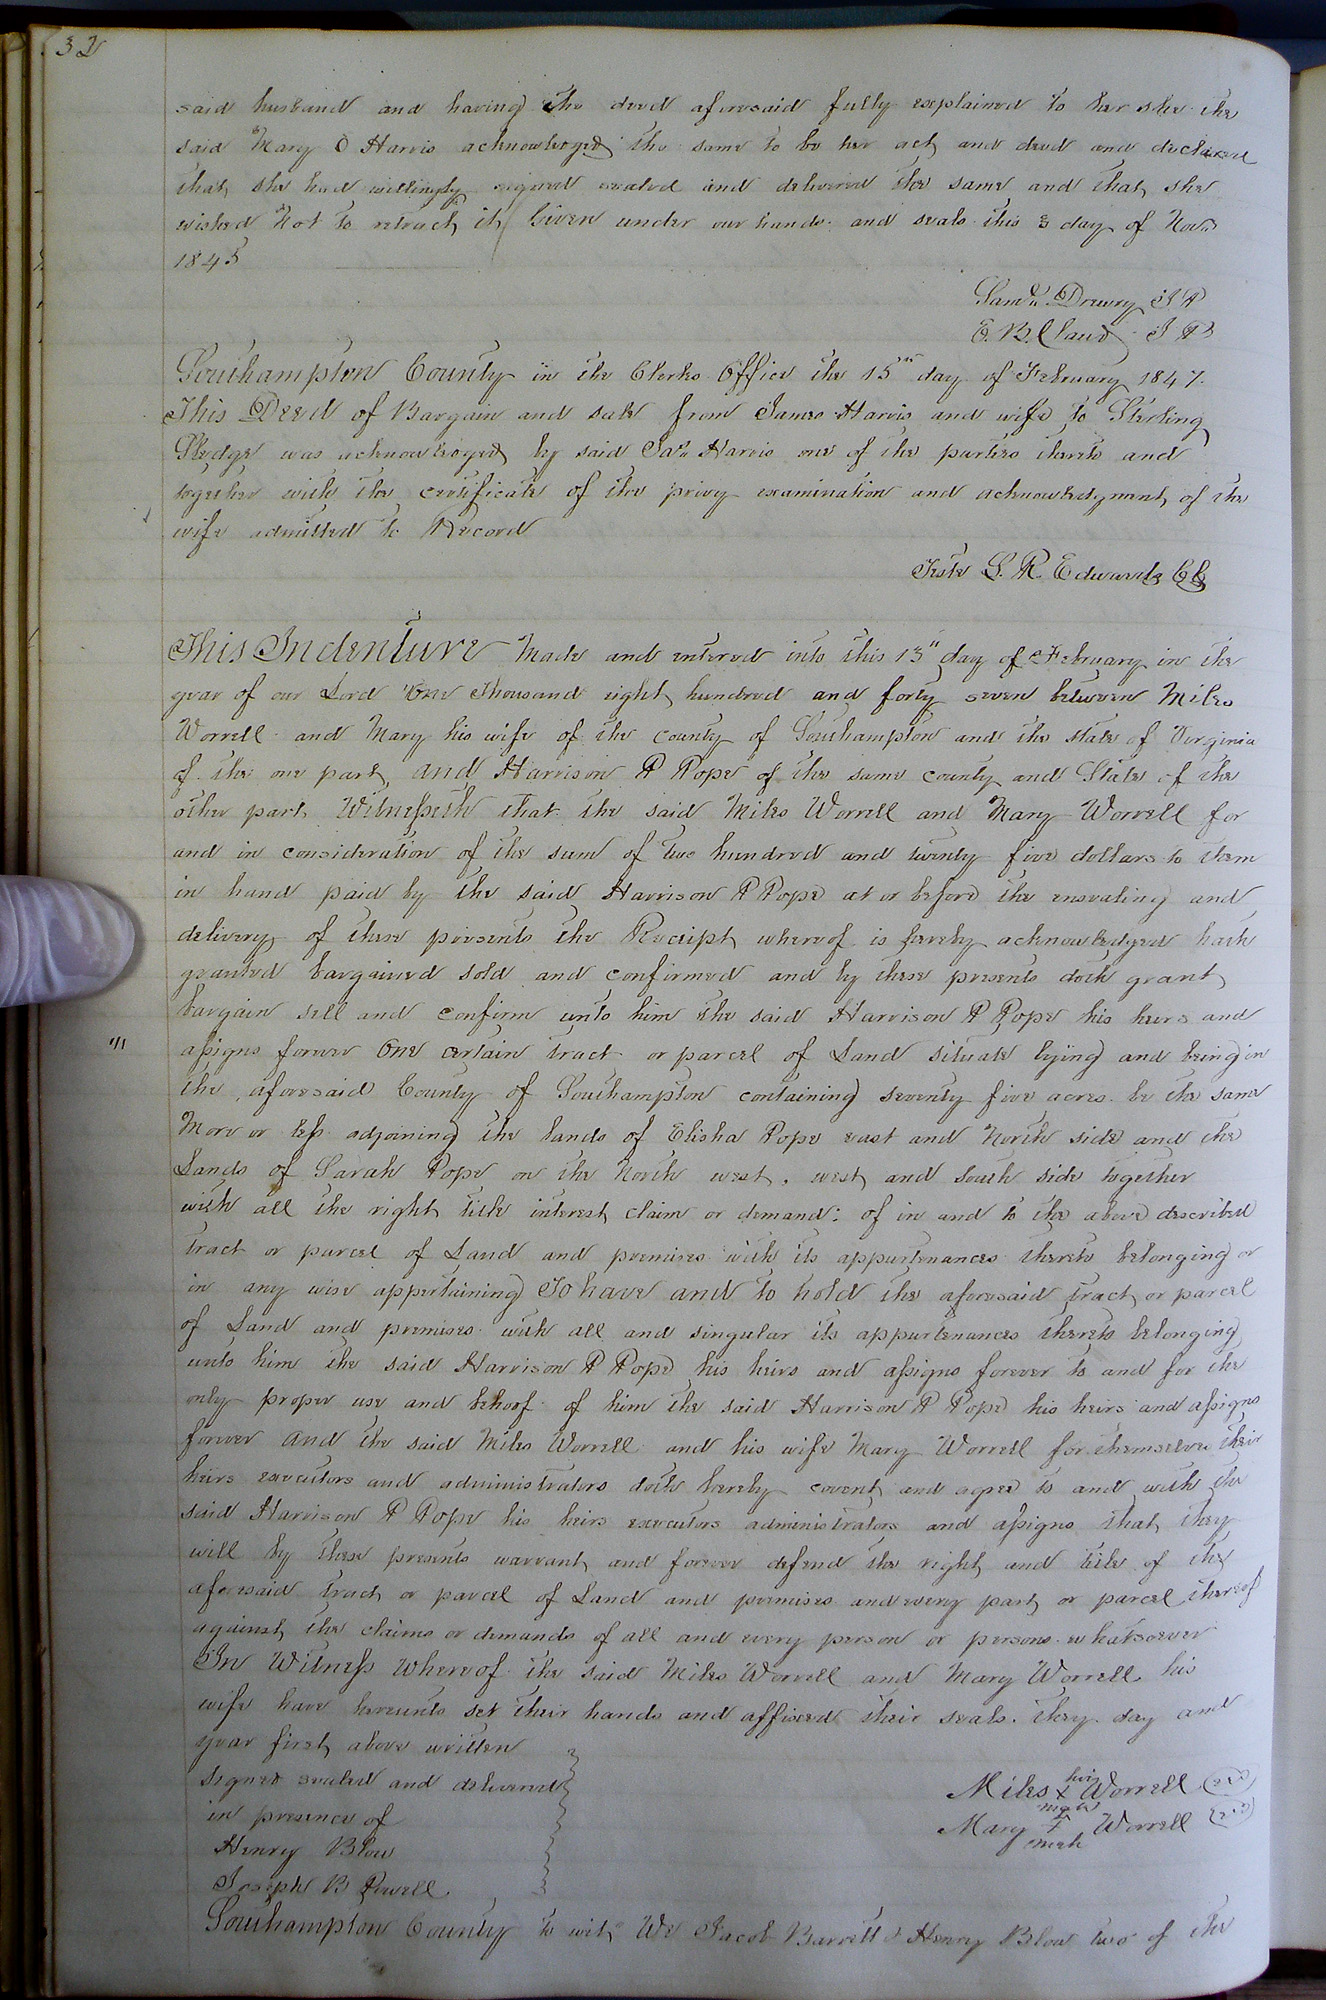 32
said husband and having the deed aforesaid fully explained to her she the
said Mary C Harris acknowledged the same to be her act and deed and declared
that she had willingly signed sealed and delivered the same and that she
wished not to retract it Given under our hands and seals this 3 day of Novr
1845
Saml Drewry J P
E. B. Claud J P
Southampton County in the Clerks Office the 15th day of February 1847.
This Deed of Bargain and sale from James Harris and wife to Sterling
Sledge was acknowledged by said Jas Harris one of the parties thereto and
together with the certificate of the privy examination and acknowledgment of the
wife admitted to Record
Teste L. R. Edwards CC
This Indenture Made and entered into this 13" day of February in the
year of our Lord One Thousand eight hundred and forty seven between Miles
Worrell and Mary his wife of the county of Southampton and the state of Virginia
of the one part and Harrison P Pope of the same county and State of the
other part Witnesseth that the said Miles Worrell and Mary Worrell for
and in consideration of the sum of two hundred and twenty five dollars to them
in hand paid by the said Harrison P Pope at or before the ensealing and
delivery of these presents the Receipt whereof is hereby acknowledged hath
granted bargained sold and confirmed and by these presents doth grant
bargain sell and confirm unto him the said Harrison P Pope his heirs and
assigns forever One certain tract or parcel of Land situate lying and being in
the aforesaid County of Southampton containing seventy five acres be the same
More or less adjoining the lands of Elisha Pope east and North side and the
Lands of Sarah Pope on the North west, west and South side together
with all the right title interest claim or demand: of in and to the above described
tract or parcel of Land and premises with its appurtenances thereto belonging or
in any wise appertaining To have and to hold the aforesaid tract or parcel
of Land and premises with all and singular its appurtenances thereto belonging
unto him the said Harrison P Pope his heirs and assigns forever to and for the
only proper use and behoof of him the said Harrison P Pope his heirs and assigns
forever And the said Miles Worrell and his wife Mary Worrell for themselves their
heirs executors and administrators doth hereby covent and agree to and with the
said Harrison P Pope his heirs executors administrators and assigns that they
will by these presents warrant and forever defend the right and title of the
aforesaid tract or parcel of Land and premises and every part or parcel thereof
against the claims or demands of all and every person or persons whatsoever
In Witness Whereof the said Miles Worrell and Mary Worrell his
wife have hereunto set their hands and affixed their seals. they day and
year first above written
signed sealed and delivered
in presence of
Henry Blow
Joseph B Powell
his
Miles x Worrell
mark
Mary + Worrell
mark
Southampton County to wit We Jacob Barrett & Henry Blow two of the